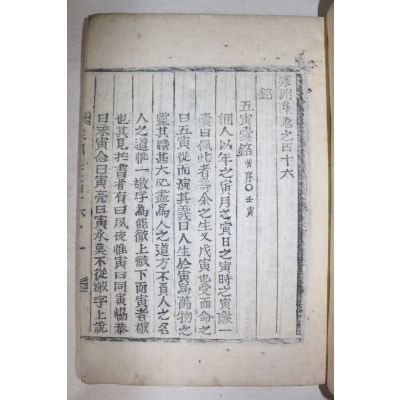 寒洲集卷之四十六
銘
五寅囊銘 幷序○壬寅
人以年之寅月之寅日之寅時之寅一
囊曰佩此者壽余之生又戊寅也受而命之
曰五寅從而演其義曰人生於寅爲萬物之
靈其職甚大必盡爲人之道方不負人之名
人之道惟一敬字爲能徹上徹下而寅者敬
也其見於書者有曰夙夜惟寅曰同寅協恭
曰寅念曰寅亮曰寅永莫不從敬字上說